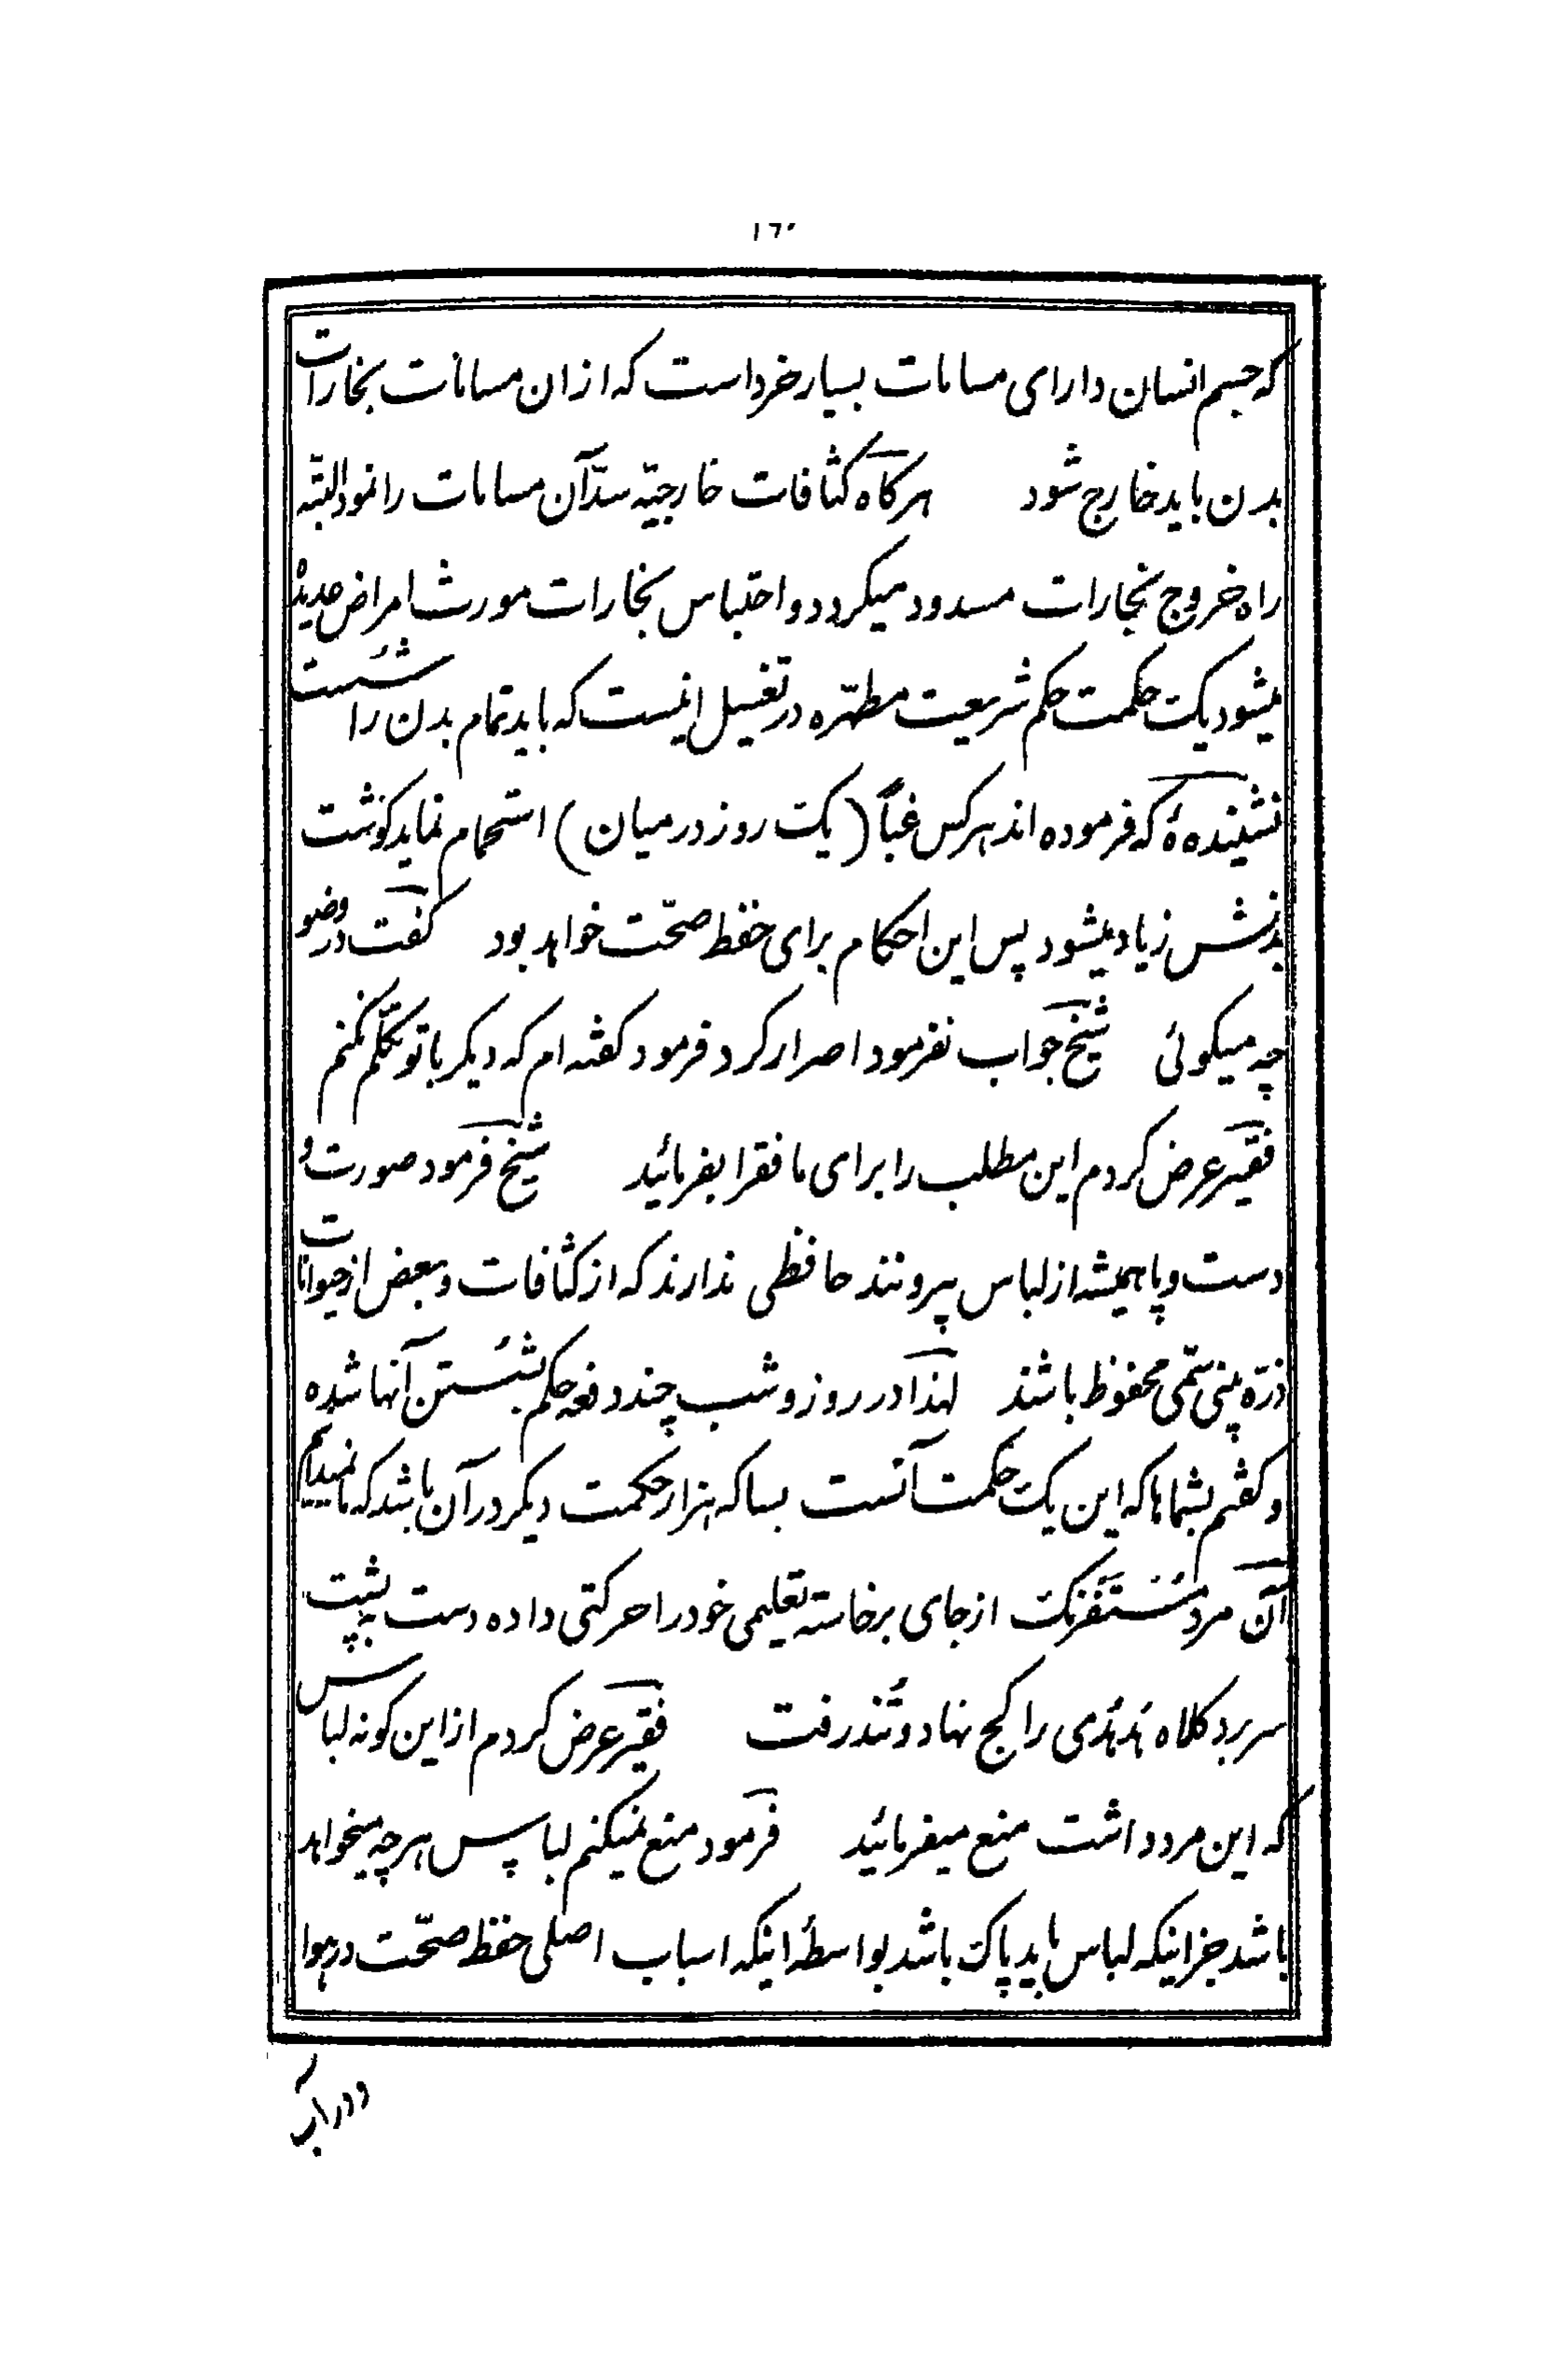 ۱٦۰
که جسم انسان دارای مسامات بسیار خرد است که از ان مسامات بخارات
بدن باید خارج شود هرکاه کثافات خارجیّه سدّ آن مسامات را نمود البتّه
راه خروج بخارات مسدود میکردد و احتباس بخارات مورث امراض عدیده
میشود یکت حکمت حکم شریعت مطهّره در تغسیل اینست که باید تمام بدن را شست
نشنیدهٔ که فرموده اند هرکس غباً (یکت روز در میان) استحمام نماید کوشت
بدنش زیاد میشود پس این احکام برای حفظ صحّت خواهد بود کفت در وضو
چه میکوئی شیخ جواب نفرمود اصرار کرد فرمود کفته ام که دیکر با تو تکلّم نکنم
فقیر عرض کردم این مطلب را برای ما فقرا بفرمائید شیخ فرمود صورت و
دست و پا همیشه از لباس بیرونند حافظی ندارند که از کثافات و بعض از حیوانات
ذرّه بینی سمّی محفوظ باشند لهذا در روز و شب چند دفعه حکم بشستن آنها شده
و کفتم بشماها که این یکت حکمت آنست بسا که هزار حکمت دیکر در آن باشد که ما نمیدانیم
آن مرد مُستَفرَنکت از جای برخاسته تعلیمی خود را حرکتی داده دست بپشت
سر برد کلاه هُدهُدی را کج نهاد و تُند رفت فقیر عرض کردم از این کونه لباس
که این مرد داشت منع میفرمائید فرمود منع نمیکنم لباس هر چه میخواهد
باشد جز اینکه لباس باید پاک باشد بواسطهٔ اینکه اسباب اصلی حفظ صحّت در هوا